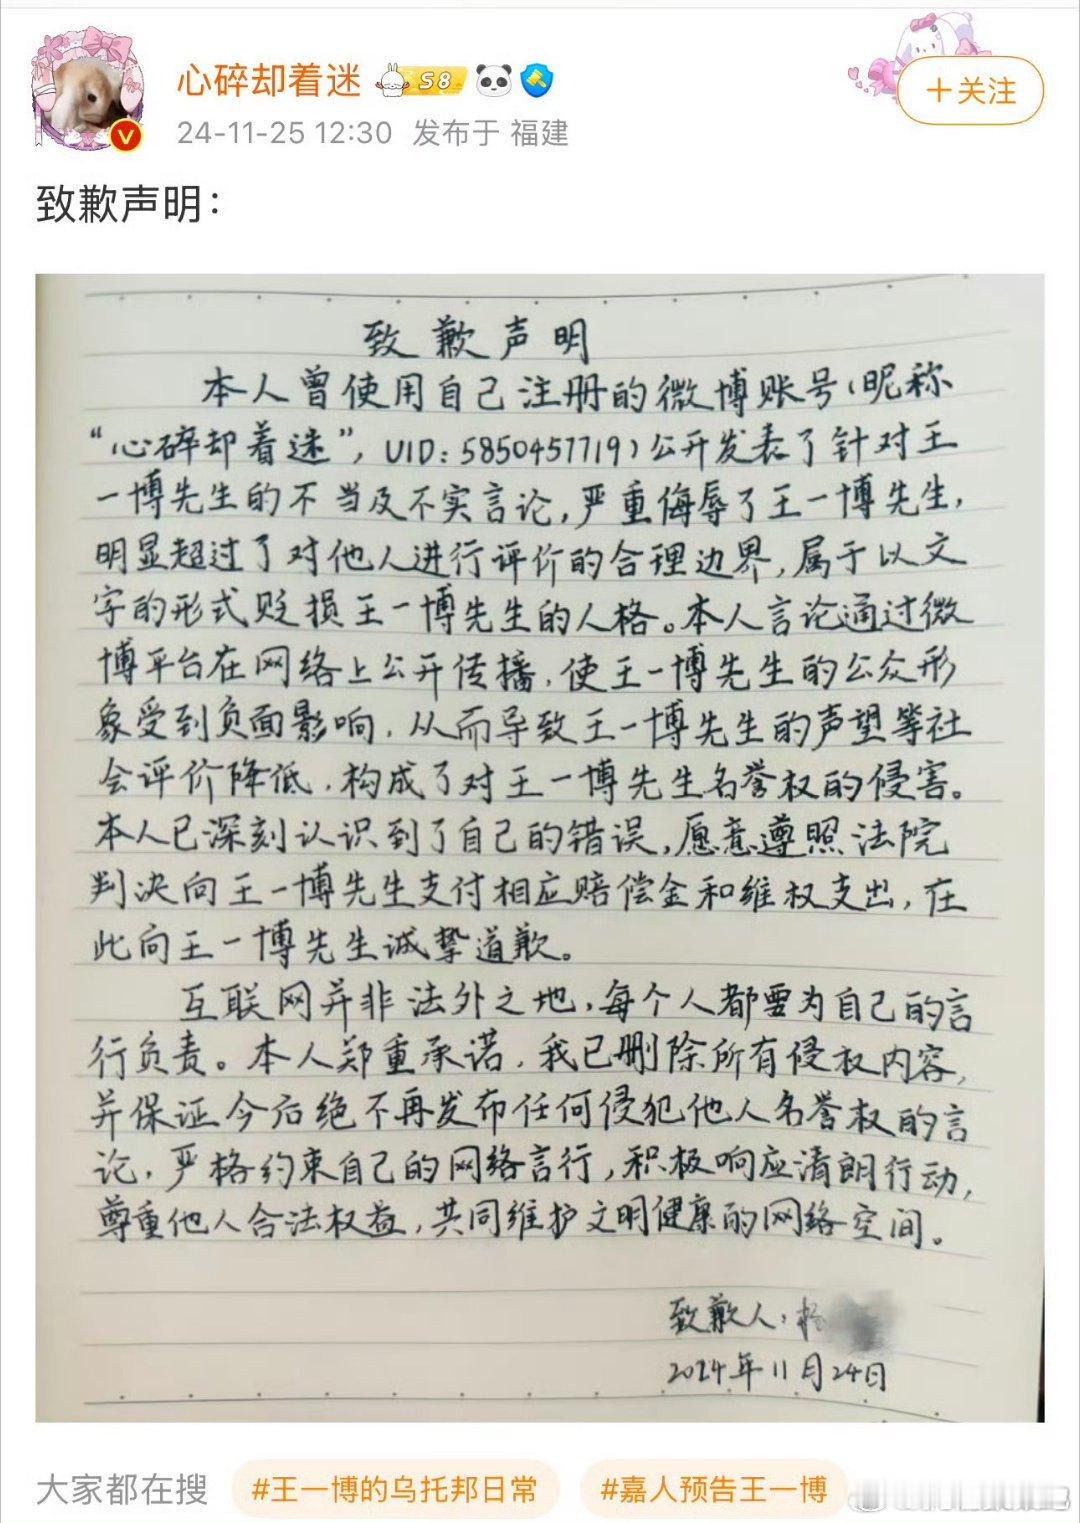 心碎却着迷 S8
+关注
24-11-25 12:30 发布于 福建
致歉声明：
致歉声明
本人曾使用自己注册的微博账号（昵称
“心碎却着迷”，UID：5850457719）公开发表了针对王
一博先生的不当及不实言论，严重侮辱了王一博先生，
明显超过了对他人进行评价的合理边界，属于以文
字的形式贬损王一博先生的人格。本人言论通过微
博平台在网络上公开传播，使王一博先生的公众形
象受到负面影响，从而导致王一博先生的声望等社
会评价降低，构成了对王一博先生名誉权的侵害。
本人已深刻认识到了自己的错误，愿意遵照法院
判决向王一博先生支付相应赔偿金和维权支出，在
此向王一博先生诚挚道歉。
互联网并非法外之地，每个人都要为自己的言
行负责。本人郑重承诺，我已删除所有侵权内容，
并保证今后绝不再发布任何侵犯他人名誉权的言
论，严格约束自己的网络言行，积极响应清朗行动，
尊重他人合法权益，共同维护文明健康的网络空间。
致歉人：杨
2024年11月24日
大家都在搜 #王一博的乌托邦日常 #嘉人预告王一博